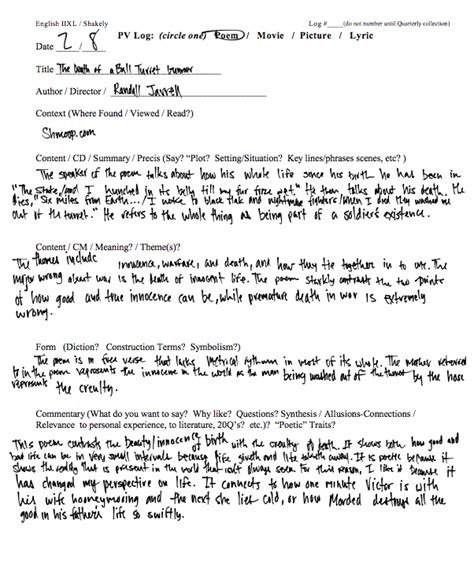 English IIXL / Shakely Log #____(do not number until Quarterly collection)
PV Log: (circle one) Poem / Movie / Picture / Lyric
Date 2/8
Title The Death of a Ball Turret Gunner
Author / Director / Randall Jarrell
Context (Where Found / Viewed / Read?)
Shmoop.com
Content / CD / Summary / Precis (Say? "Plot? Setting/Situation? Key lines/phrases scenes, etc? )
The speaker of the poem talks about how his whole life since his birth he has been in
"The State, and I hunched in its belly till my fur froze." He then talks about his death. He
dies, "Six miles from Earth.../I woke to black flak and nightmare fighters/When I died they washed me
out of the turret." He refers to the whole thing as being part of a soldiers existence.
Content / CM / Meaning? / Theme(s)?
The themes include innocence, warfare, and death, and how they tie together in to one. The
major wrong about war is the death of innocent life. The poem starkly contrasts the two points
of how good and true innocence can be, while premature death in war is extremely
wrong.
Form (Diction? Construction Terms? Symbolism?)
The poem is in free verse that lacks metrical rythmn in most of its whole. The mother referred
to in the poem represents the innocence in the world as the man being washed out of the turret by the hose
represent the creulty.
Commentary (What do you want to say? Why like? Questions? Synthesis / Allusions-Connections /
Relevance to personal experience, to literature, 20Q's? etc.)? "Poetic" Traits?
This poem contrasts the beauty/innocency of birth with the creulty of death. It shows both how good and
bad life can be in very small intervals because life giveth and life taketh away. It is poetic because it
shows the reality that is present in the world that isnt always seen. For this reason, I like it because it
has changed my perspective on life. It connects to how one minute Victor is with
his wife honeymooning and the next she lies cold, or how Morded destroys all the
good in his father's life so swiftly.